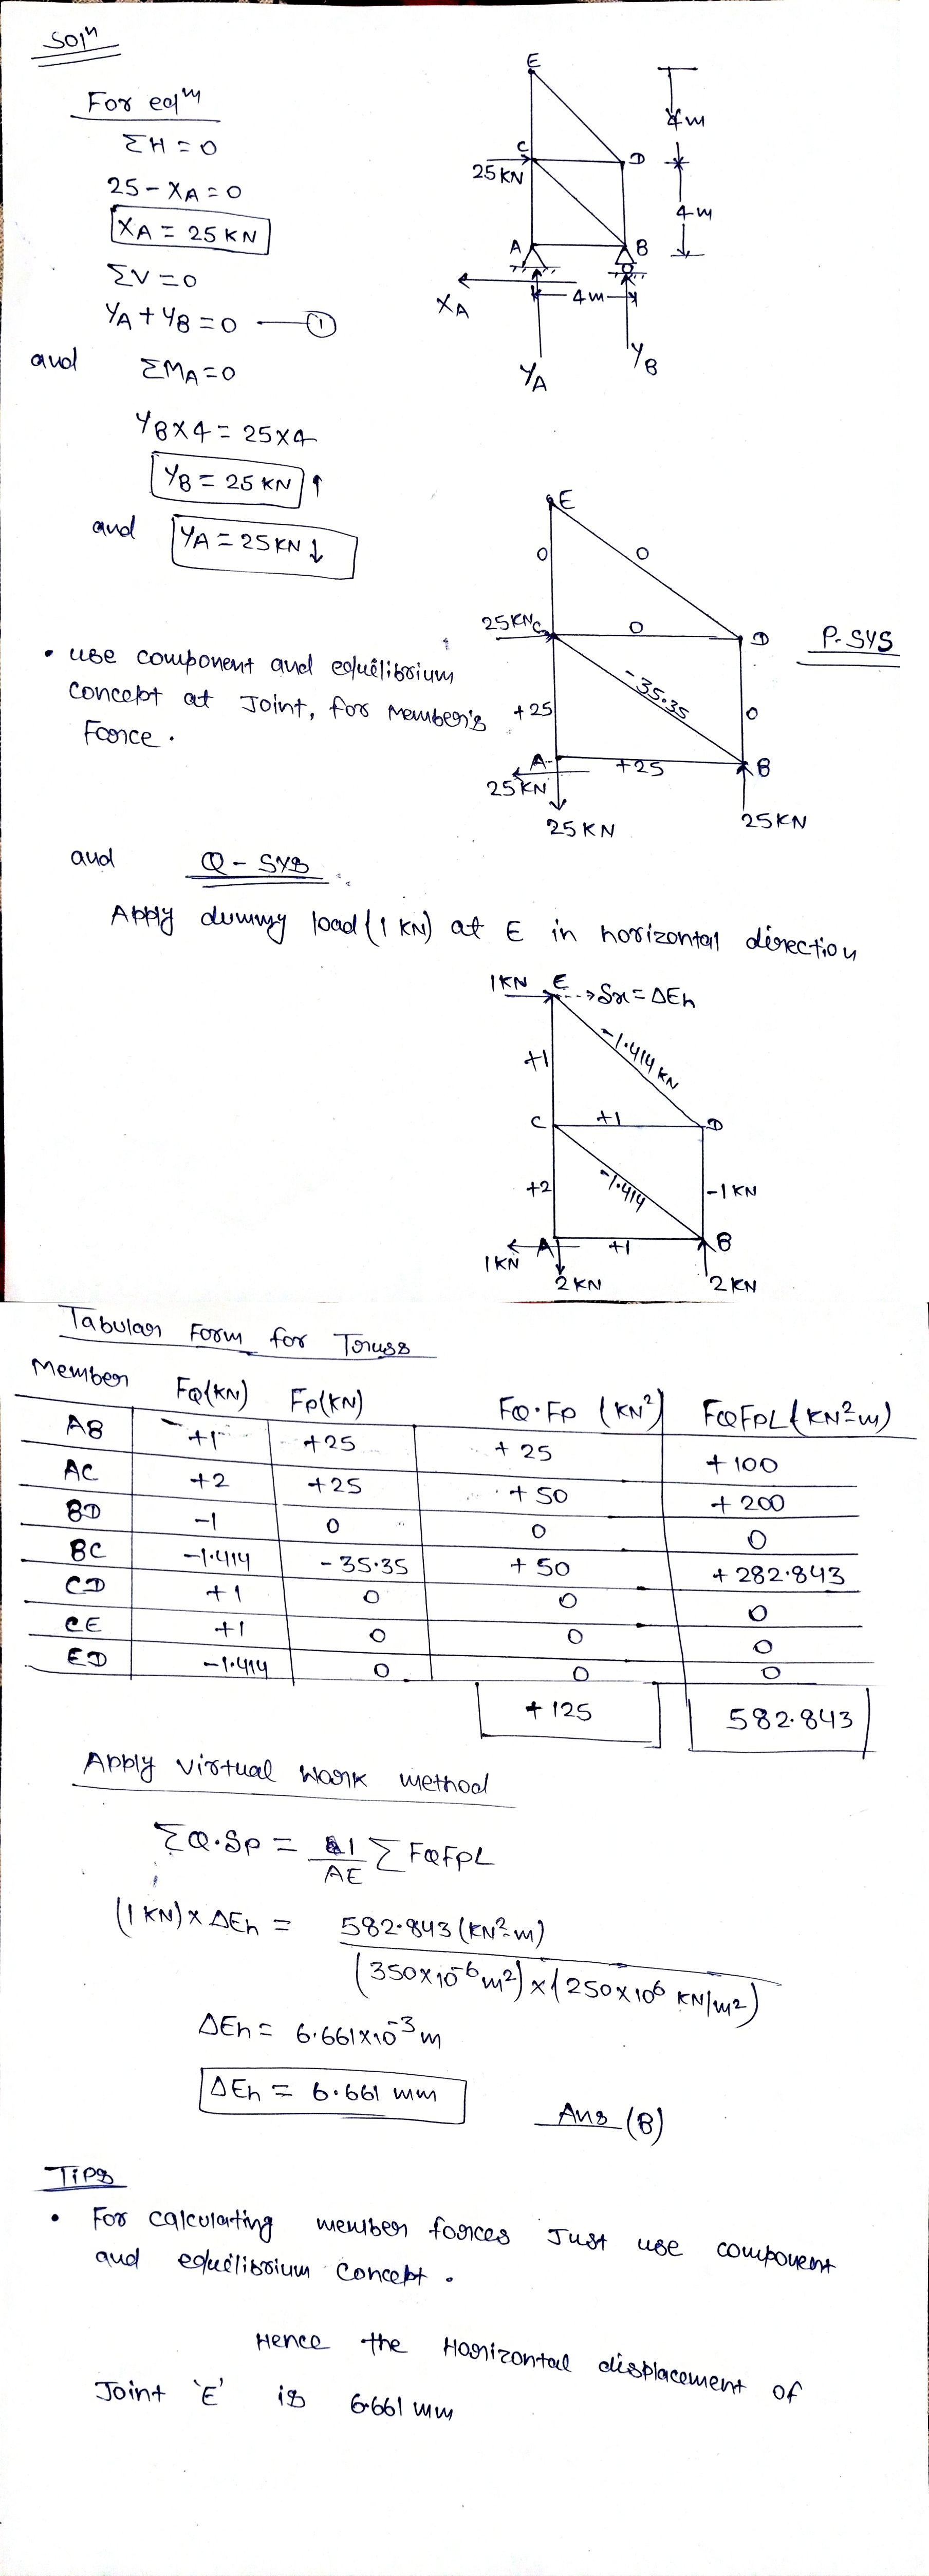 Solⁿ
For eqⁿ
ΣH = 0
25 - XA = 0
XA = 25 KN
ΣV = 0
YA + YB = 0 — ①
and ΣMA = 0
YB × 4 = 25 × 4
YB = 25 KN ↑
and YA = 25 KN ↓
E
4m
C
D
25 KN
4m
A
B
XA
4m
YA
YB
• use component and equilibrium
concept at Joint, for Member's
Force.
E
0
0
25KN
C
0
D
P-SYS
-35.35
+25
0
A
+25
B
25KN
25 KN
25KN
and Q - SYS
Apply dummy load (1 KN) at E in horizontal direction
1KN E → δx = ΔEh
-1.414 KN
+1
C
+1
D
+2
-1.414
-1 KN
A
+1
B
1KN
2 KN
2 KN
Tabular Form for Truss
Member FQ(KN) FP(KN) FQ·FP (KN²) FQFPL (KN²m)
AB +1 +25 +25 +100
AC +2 +25 +50 +200
BD -1 0 0 0
BC -1.414 -35.35 +50 +282.843
CD +1 0 0 0
CE +1 0 0 0
ED -1.414 0 0 0
+125 582.843
Apply virtual work method
ΣQ·δP = 1/AE Σ FQFPL
(1 KN) × ΔEh = 582.843 (KN²m) / (350×10⁻⁶ m²) × (250×10⁶ KN/m²)
ΔEh = 6.661×10⁻³ m
ΔEh = 6.661 mm
Ans (B)
Tips
• For calculating member forces Just use component
and equilibrium concept.
Hence the Horizontal displacement of
Joint 'E' is 6.661 mm